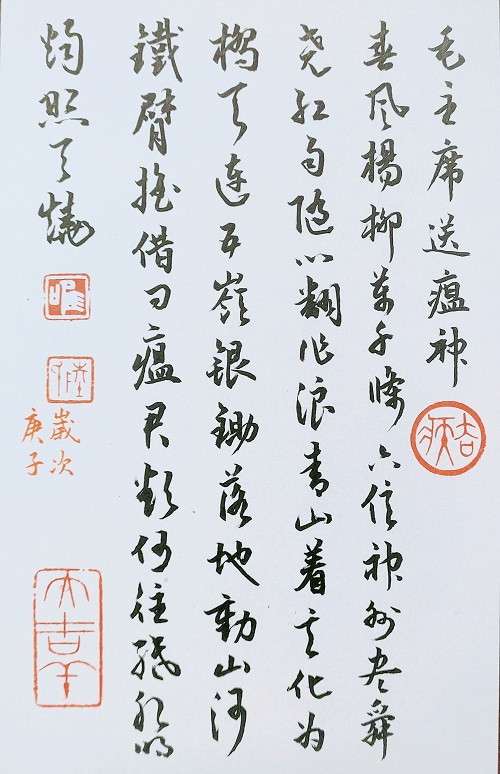 毛主席送瘟神
春风楊柳萬千條六億神州尽舜
尧红雨随心翻作浪青山着意化为
橋天連五嶺銀鋤落地動山河
鐵臂摇借问瘟君欲何往纸船明
烛照天燒
歲次
庚子
大吉羊